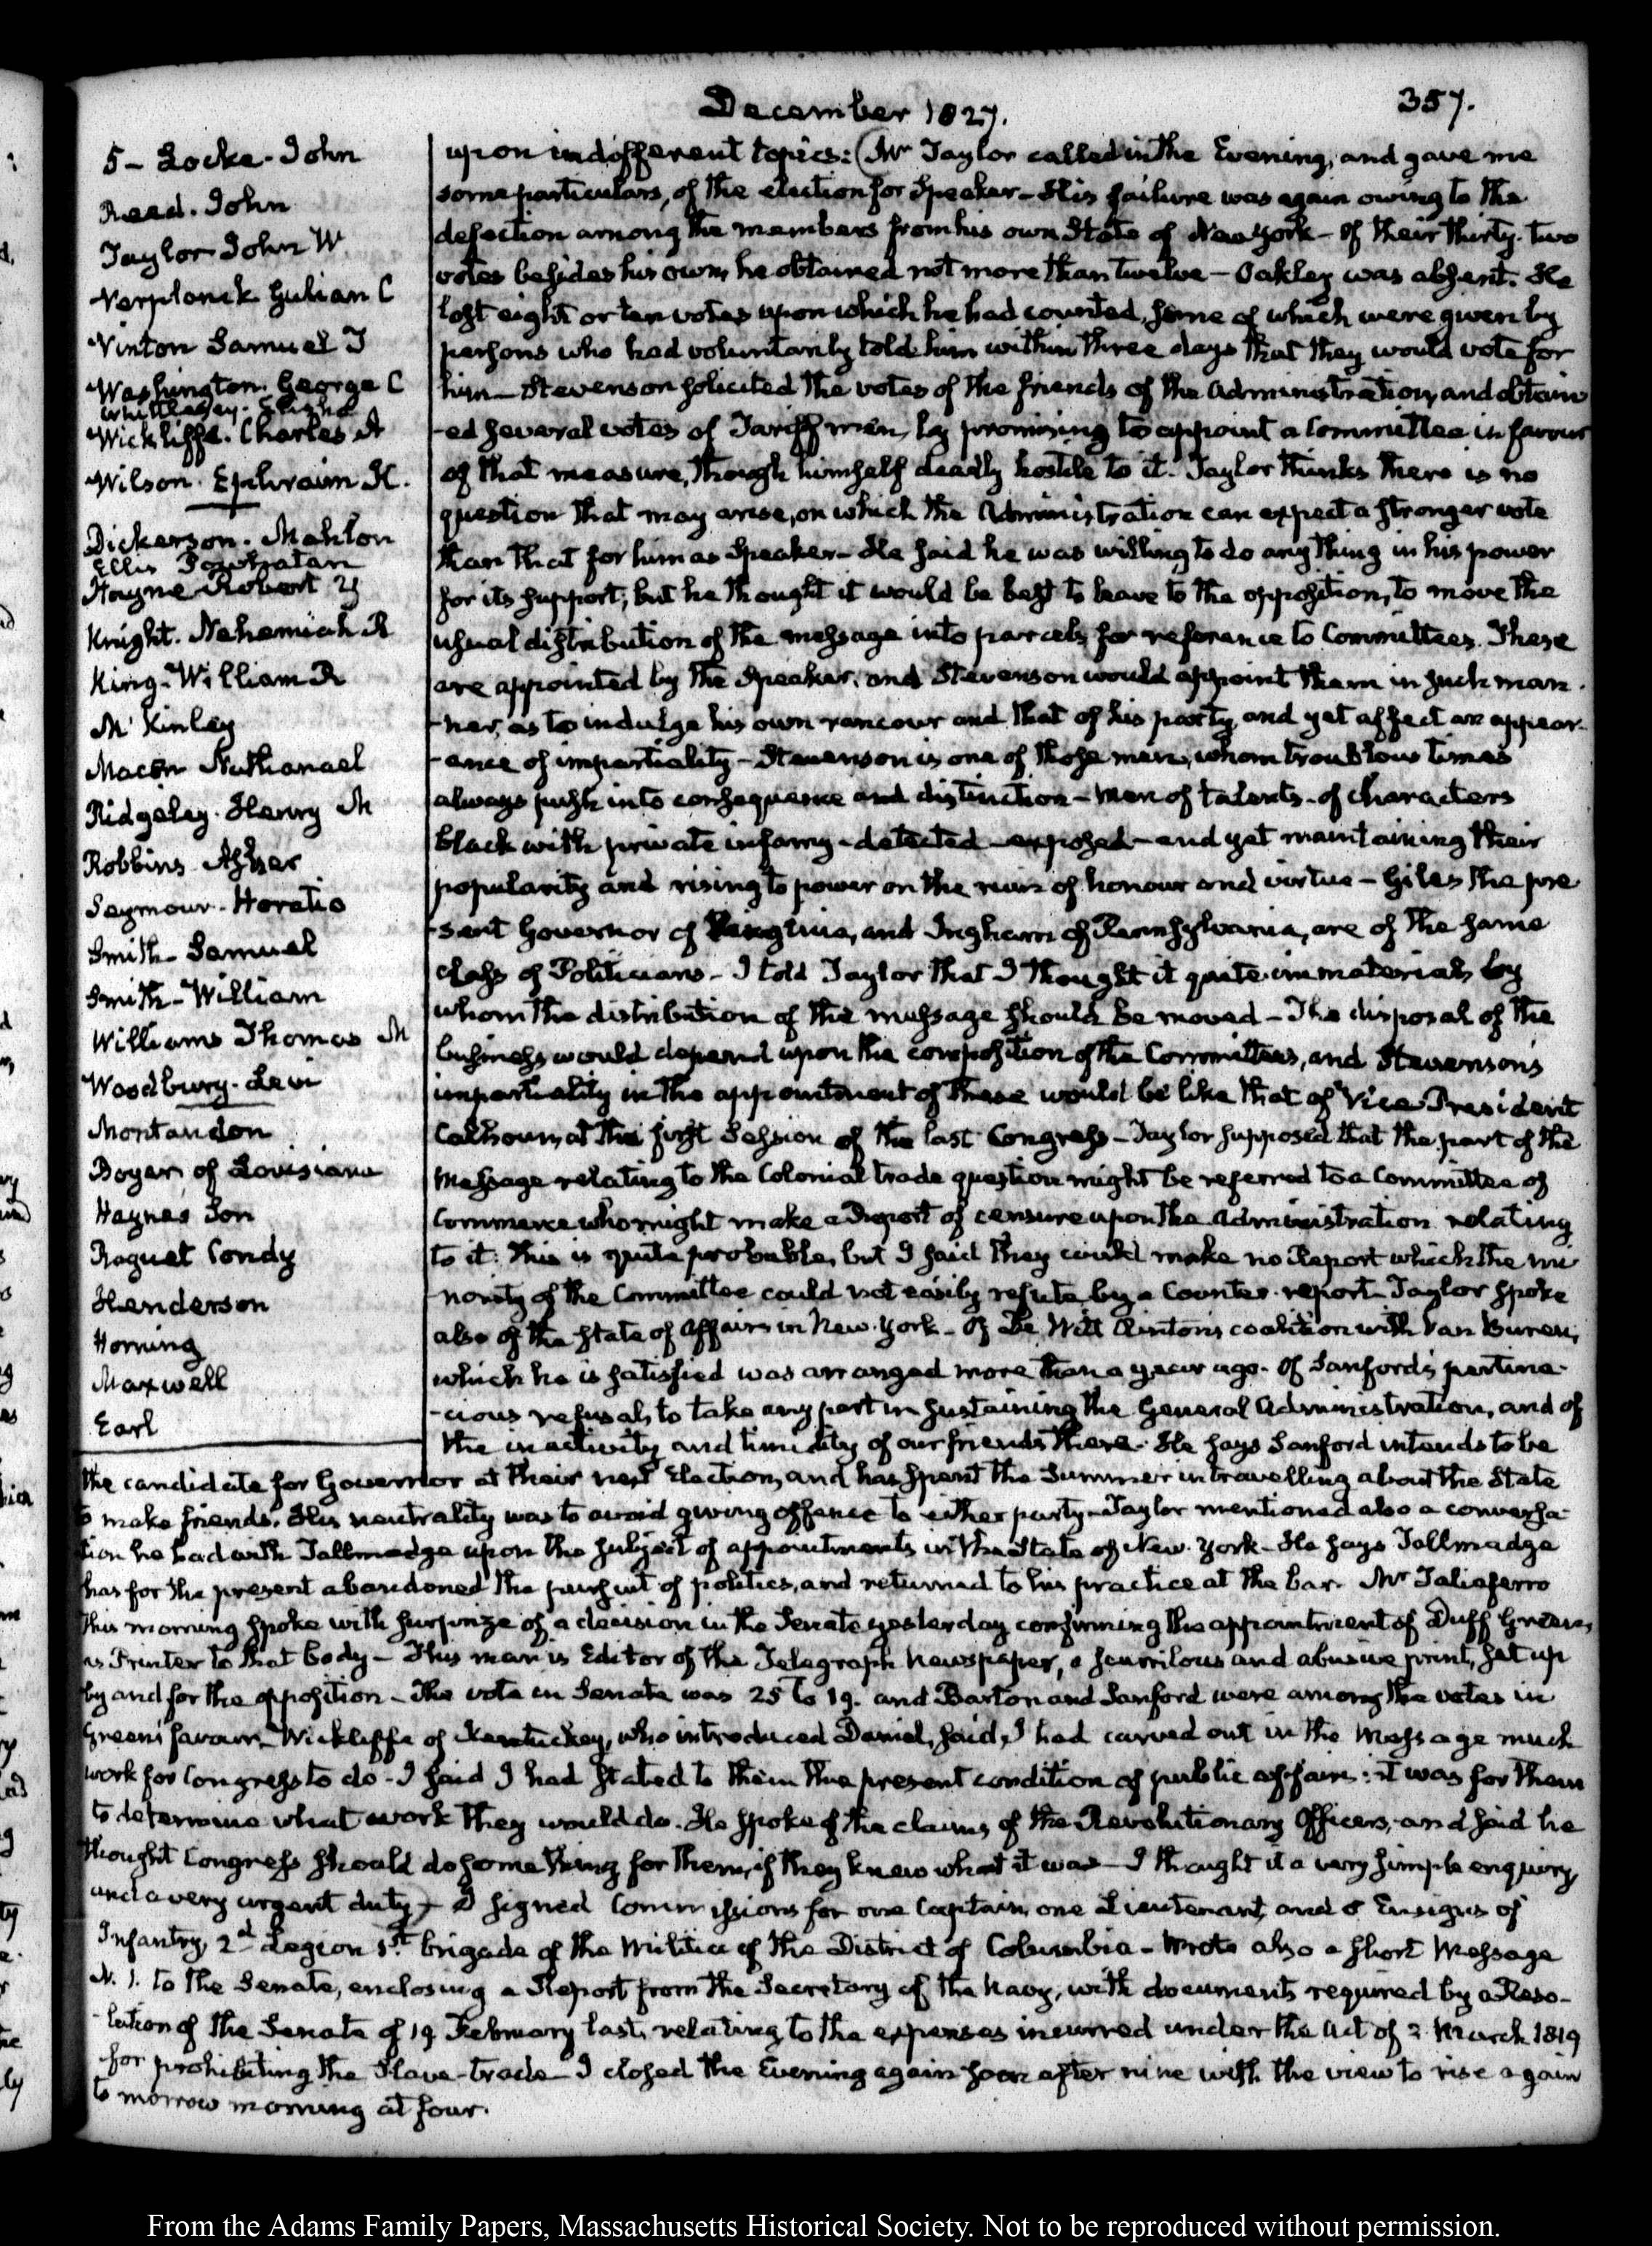 December 1827.
357.
5 - Locke - John
Reed. John
Taylor John W.
Verplanck Gulian C
Vinton Samuel F
Washington. George C
Whittlesey. Elisha
Wickliffe. Charles A
Wilson. Ephraim K.
Dickerson. Mahlon
Ellis Powhatan
Hayne Robert Y
Knight. Nehemiah R
King - William R
McKinley
Macon Nathanael
Ridgeley. Henry M
Robbins Asher
Seymour. Horatio
Smith - Samuel
Smith - William
Williams Thomas M
Woodbury. Levi
Montandon
Boyer of Louisiana
Haynes Son
Raguet Condy
Henderson
Horning
Maxwell
Earl
upon indifferent topics: (Mr Taylor called in the Evening, and gave me
some particulars, of the election for Speaker - His failure was again owing to the
defection among the members from his own State of New York - Of their thirty-two
votes besides his own, he obtained not more than twelve - Oakley was absent. He
lost eight or ten votes upon which he had counted, some of which were given by
persons who had voluntarily told him within three days that they would vote for
him - Stevenson solicited the votes of the friends of the Administration, and obtain
-ed several votes of Tariff men, by promising to appoint a Committee in favour
of that measure, though himself deadly hostile to it. Taylor thinks there is no
question that may arise, on which the Administration can expect a stronger vote
than that for him as Speaker - He said he was willing to do any thing in his power
for its support, but he thought it would be best to leave to the opposition, to move the
usual distribution of the message into parcels for reference to Committees. These
are appointed by the Speaker, and Stevenson would appoint them in such man-
-ner, as to indulge his own rancour and that of his party, and yet affect an appear-
-ance of impartiality - Stevenson is one of those men, whom troublous times
always push into consequence and distinction - Men of talents - of characters
black with private infamy - detected - exposed - and yet maintaining their
popularity and rising to power on the ruin of honour and virtue - Giles the pre
-sent Governor of Virginia, and Ingham of Pennsylvania, are of the same
class of Politicians - I told Taylor that I thought it quite immaterial, by
whom the distribution of the message should be moved - The disposal of the
business would depend upon the composition of the Committees, and Stevenson's
impartiality in the appointment of these would be like that of Vice President
Calhoun, at the first Session of the last Congress - Taylor supposed that the part of the
Message relating to the Colonial trade question might be referred to a Committee of
Commerce who might make a Report of censure upon the Administration relating
to it. This is quite probable, but I said they could make no Report which the mi
-nority of the Committee could not easily refute by a Counter-report - Taylor spoke
also of the State of Affairs in New-York - of De Witt Clinton's coalition with Van Buren,
which he is satisfied was arranged more than a year ago - Of Sanford's pertina-
-cious refusal, to take any part in sustaining the General Administration, and of
the inactivity and timidity of our friends there. He says Sanford intends to be
the candidate for Governor at their next Election, and has spent the Summer in travelling about the State
to make friends. His neutrality was to avoid giving offence to either party - Taylor mentioned also a conversa-
tion he had with Tallmadge upon the subject of appointments in the State of New-York - He says Tallmadge
has for the present abandoned the pursuit of politics, and returned to his practice at the bar. Mr Taliaferro
this morning spoke with surprize of a decision in the Senate yesterday confirming the appointment of Duff Green,
as Printer to that body - This man is Editor of the Telegraph Newspaper, a scurrilous and abusive print, set up
by and for the opposition - The vote in Senate was 25 to 19. and Barton and Sanford were among the votes in
Green's favour - Wickliffe of Kentuckey, who introduced Daniel, said, I had carved out in the Message much
work for Congress to do - I said I had stated to them the present condition of public affairs: it was for them
to determine what work they would do. He spoke of the claims of the Revolutionary Officers, and said he
thought Congress should do something for them, if they knew what it was - I thought it a very simple enquiry,
and a very urgent duty - I signed Commissions for one Captain, one Lieutenant, and Ensigns of
Infantry, 2d Legion 1st brigade of the Militia of the District of Columbia - Wrote also a short Message
N. 1. to the Senate, enclosing a Report from the Secretary of the Navy, with documents required by a Reso-
-lution of the Senate of 19 February last, relating to the expenses incurred under the Act of 3 March 1819
for prohibiting the Slave-trade - I closed the Evening again soon after nine with the view to rise again
to morrow morning at four.
From the Adams Family Papers, Massachusetts Historical Society. Not to be reproduced without permission.